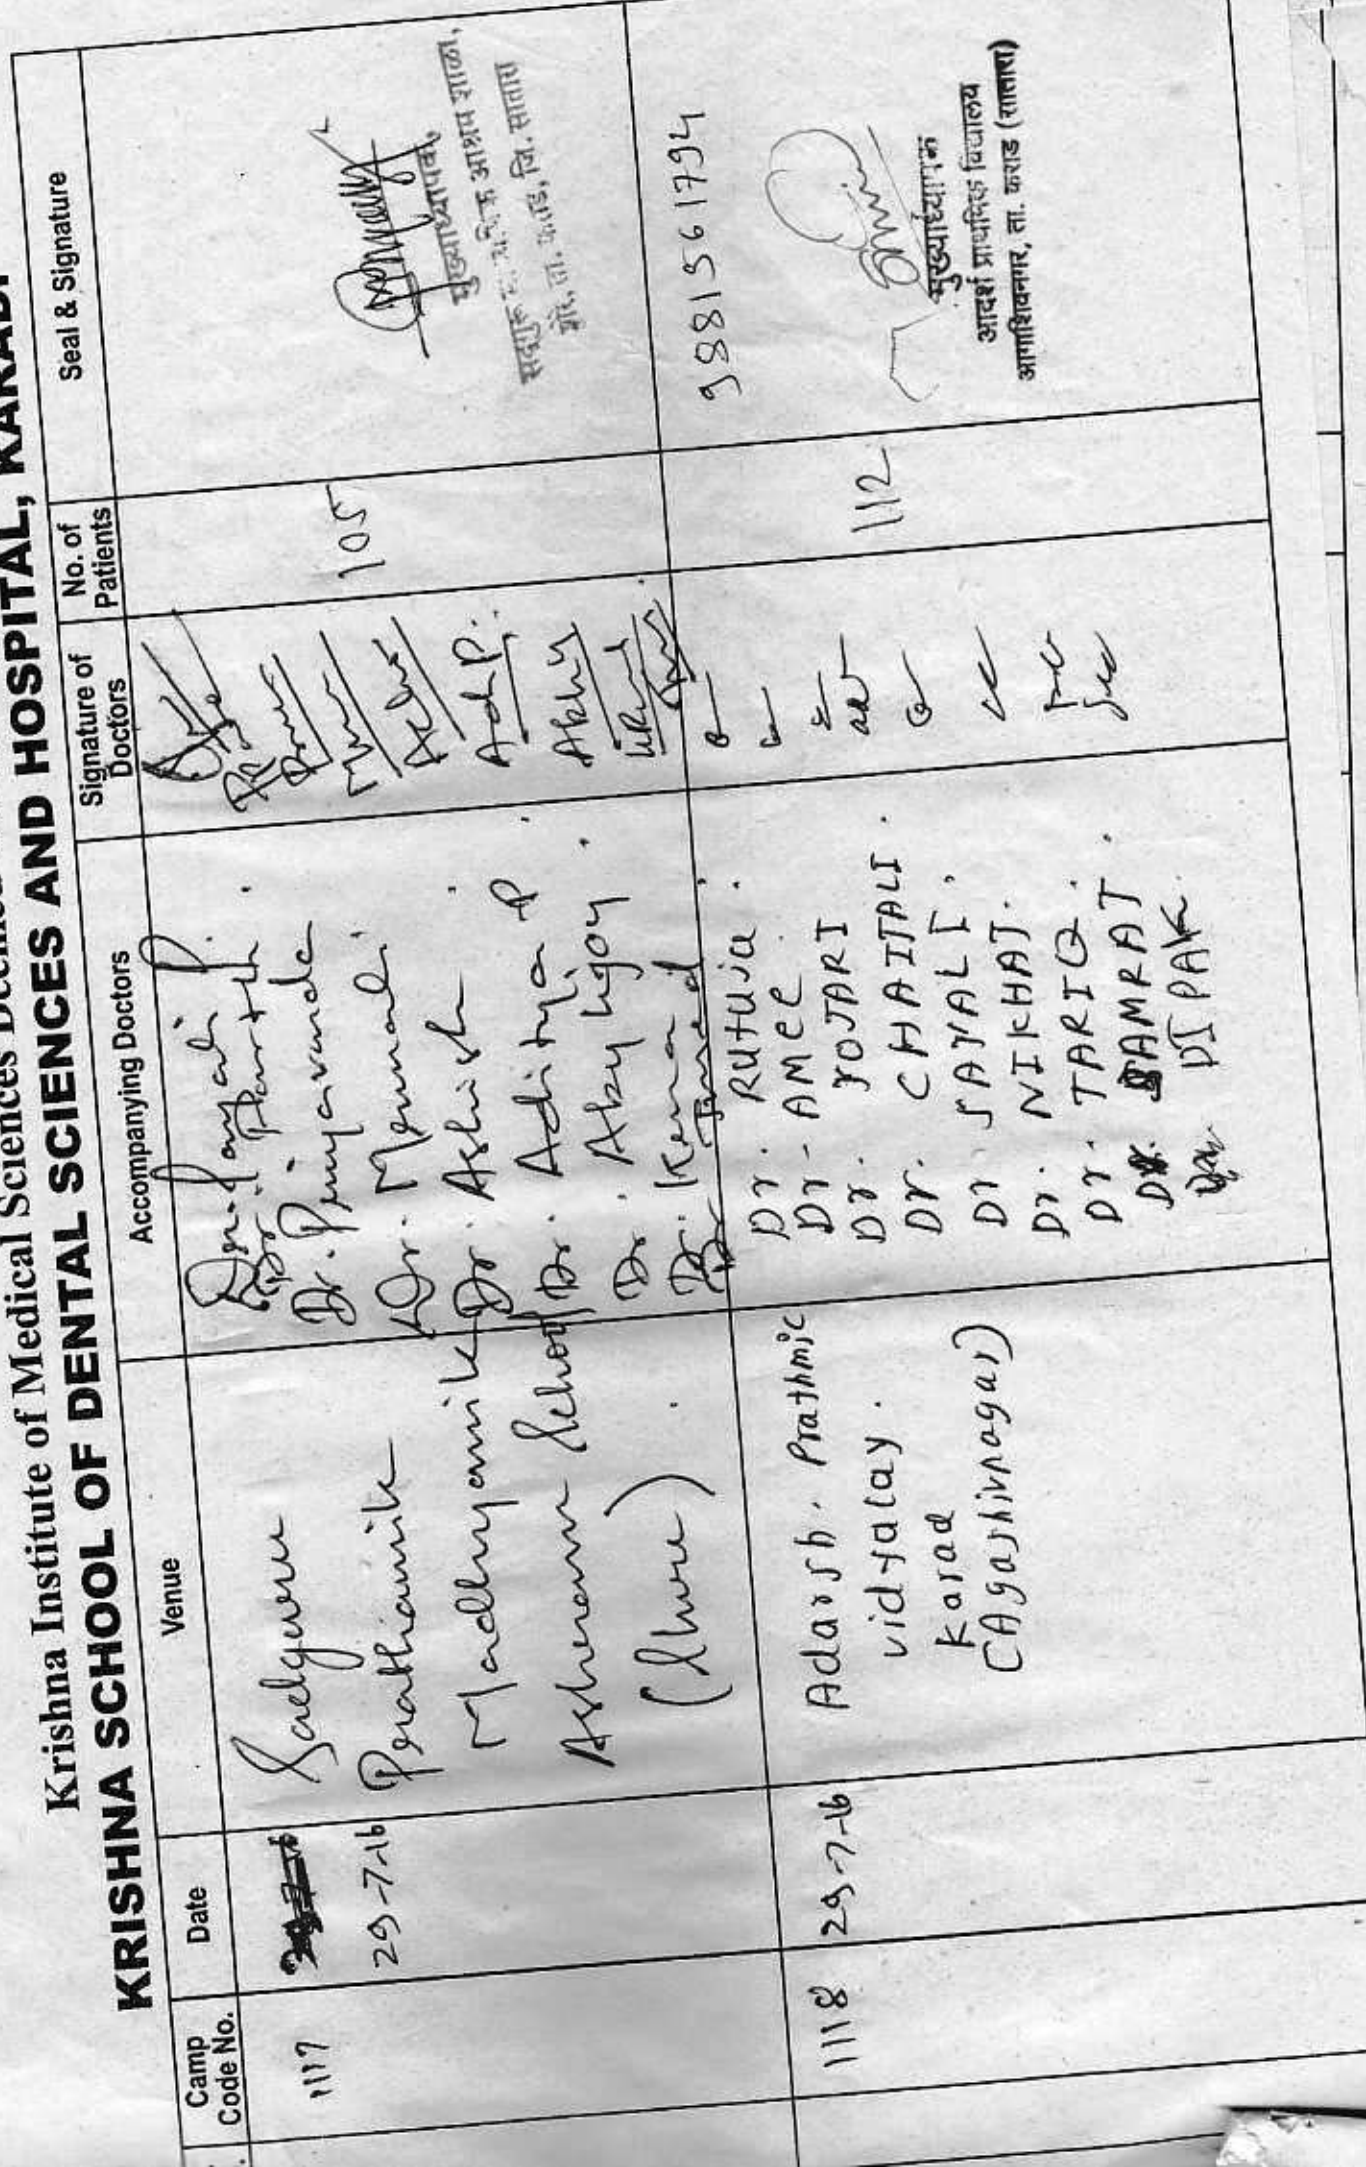 Krishna Institute of Medical Sciences
KRISHNA SCHOOL OF DENTAL SCIENCES AND HOSPITAL, KARAD.
Camp
Code No.
Date
Venue
Accompanying Doctors
Signature of
Doctors
No. of
Patients
Seal & Signature
1117
29-7-16
Sadguru
Prathamik
Madhyamik
Ashram School
Dr. Payali P.
Dr. Parth.
Dr. Priyavanda
Dr. Mrunali
Dr. Ashish
Dr. Aditya P.
Dr.
Dr. Kema
Adi P.
105
मुख्याध्यापक,
सद्गुरू आश्रम शाळा,
ता. कराड, जि. सातारा
1118
29-7-16
Adarsh. Prathmic
vidyalay.
Karad
(Agashivnagar)
Dr. Rutuja.
Dr- AMEE
Dr. YOJARI
Dr. CHAITALI.
Dr. SAYALI.
Dr. NIKHAT.
Dr. TARIQ.
Dr. SAMRAT
DIPAK
112
9881561794
मुख्याध्यापक
आदर्श प्राथमिक विद्यालय
आगाशिवनगर, ता. कराड (सातारा)